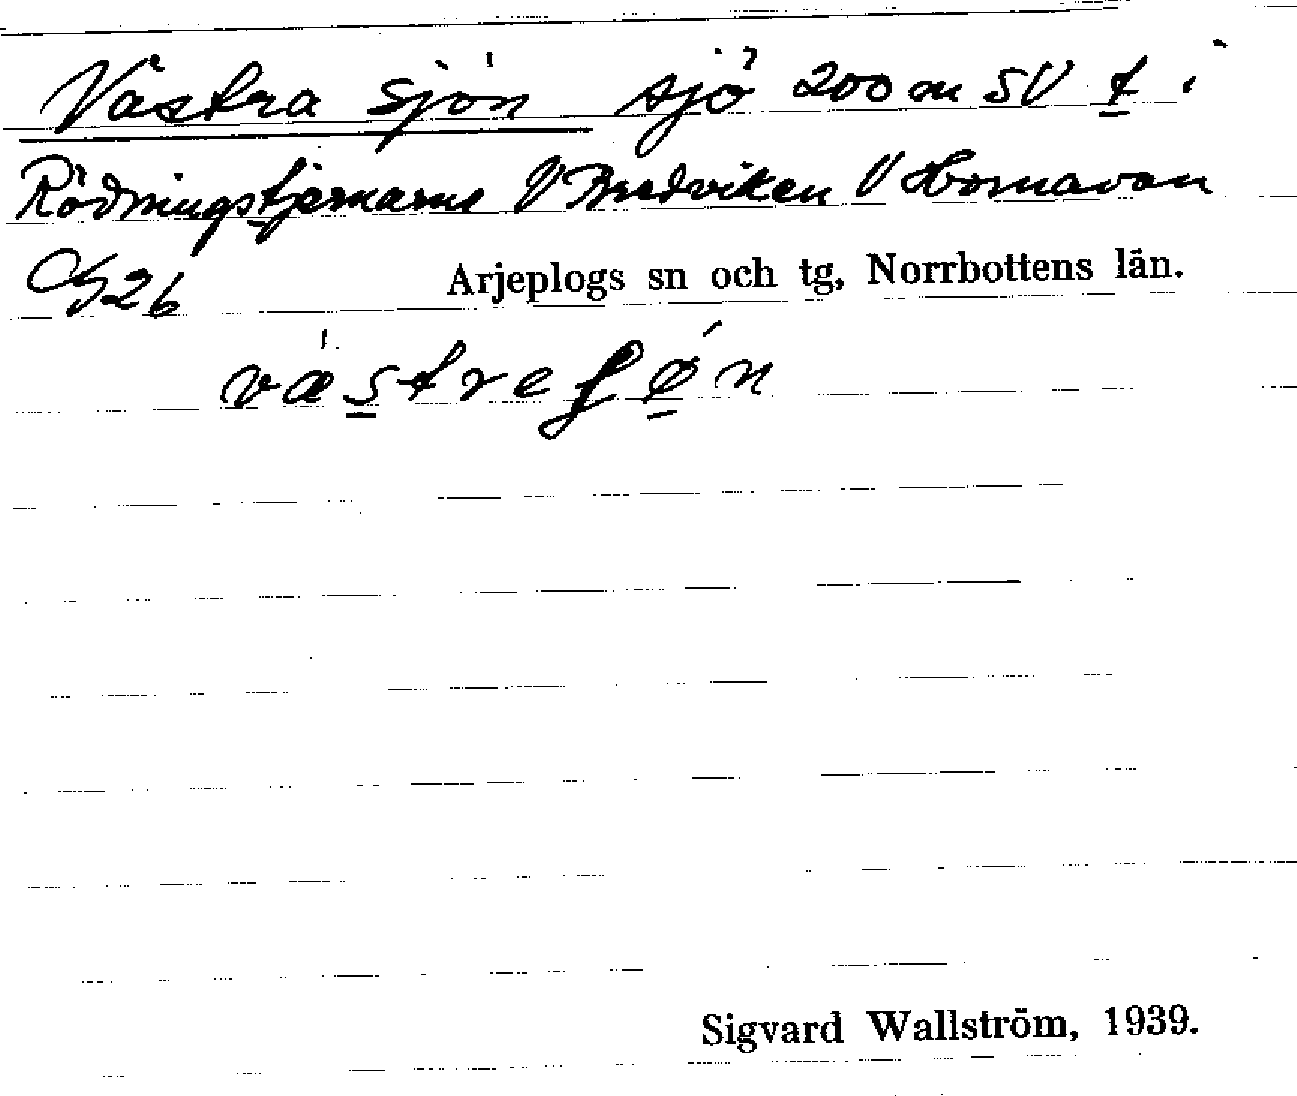 Västra sjön sjö 200 m SV t i
Rödningstjernarne V Bredviken V Hornavan
G26 Arjeplogs sn och tg, Norrbottens län.
væ̍s̲treʃǿ̲n
Sigvard Wallström, 1939.